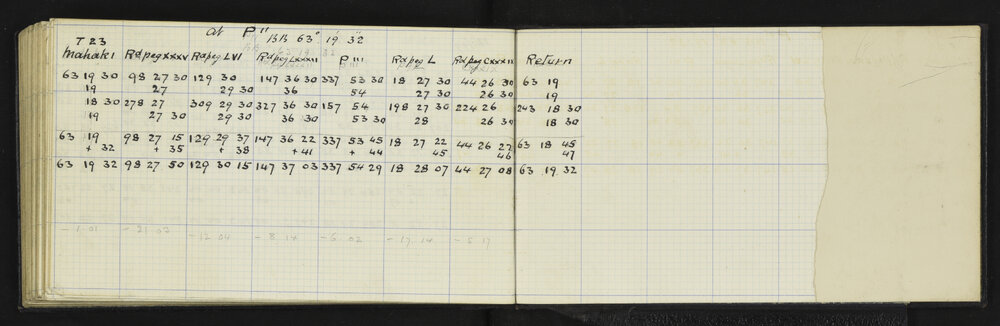 at P" BB 63° 19' 32
T 23
Mahaki Rd peg XXXV Rd peg LVI Rd peg LXXXII P III Rd peg L Rd peg Return
63 19 30 98 27 30 129 30 147 36 30 337 53 30 18 27 30 44 26 30 63 19
19 27 29 30 36 54 27 30 26 30 19
18 30 278 27 309 29 30 327 36 30 157 54 198 27 30 224 26 243 18 30
19 27 30 29 30 36 30 53 30 28 26 30 18 30
63 19 98 27 15 129 29 37 147 36 22 337 53 45 18 27 22 44 26 22 63 18 45
+ 32 + 35 + 38 + 41 + 44 45 46 47
63 19 32 98 27 50 129 30 15 147 37 03 337 54 29 18 28 07 44 27 08 63 19 32
- 1.01 - 21 03 - 12 04 - 8 14 - 6 02 - 17 14 - 5 17